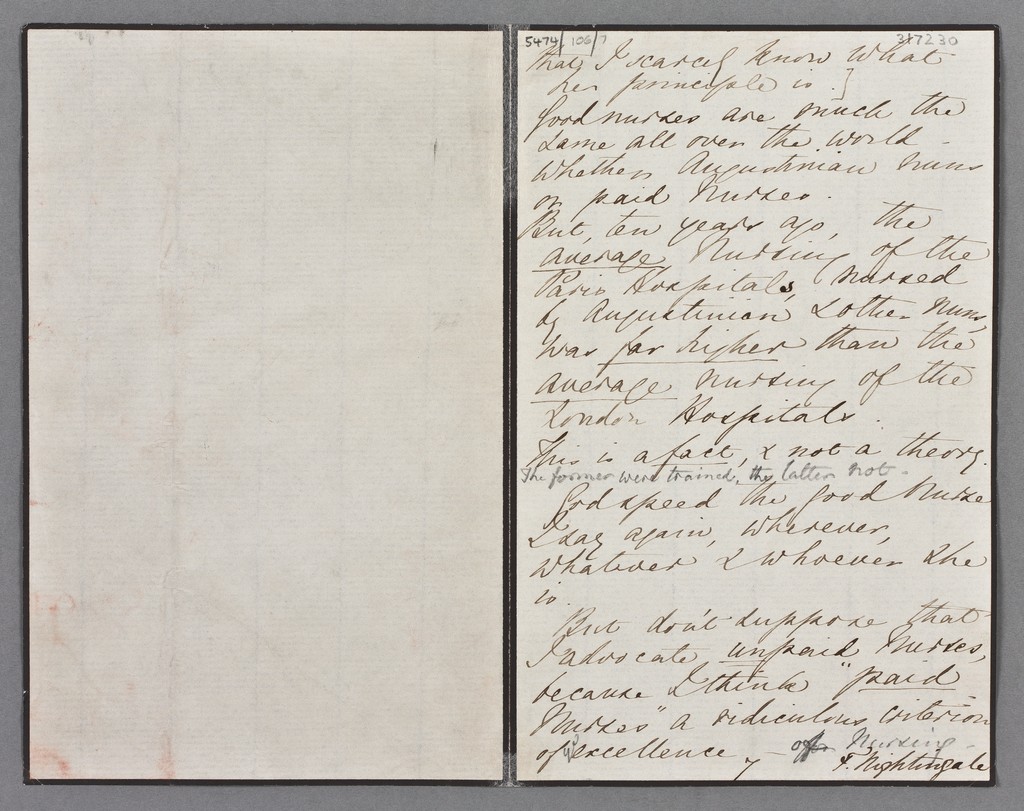 5474/106/7
317230
that, I scarcely know what
her principle is.]
Good nurses are much the
same all over the world -
whether Augustinian Nuns
or paid Nurses.
But, ten years ago, the
average Nursing of the
Paris Hospitals, nursed
by Augustinian & other Nuns,
was far higher than the
average nursing of the
London Hospitals.
This is a fact, & not a theory.
The former were trained, the latter not -
God speed the good Nurse
I say again, wherever,
whatever & whoever she
is.
But don't suppose that
I advocate unpaid Nurses,
because I think "paid
Nurses" a ridiculous criterion
of excellence - of Nursing -
F. Nightingale